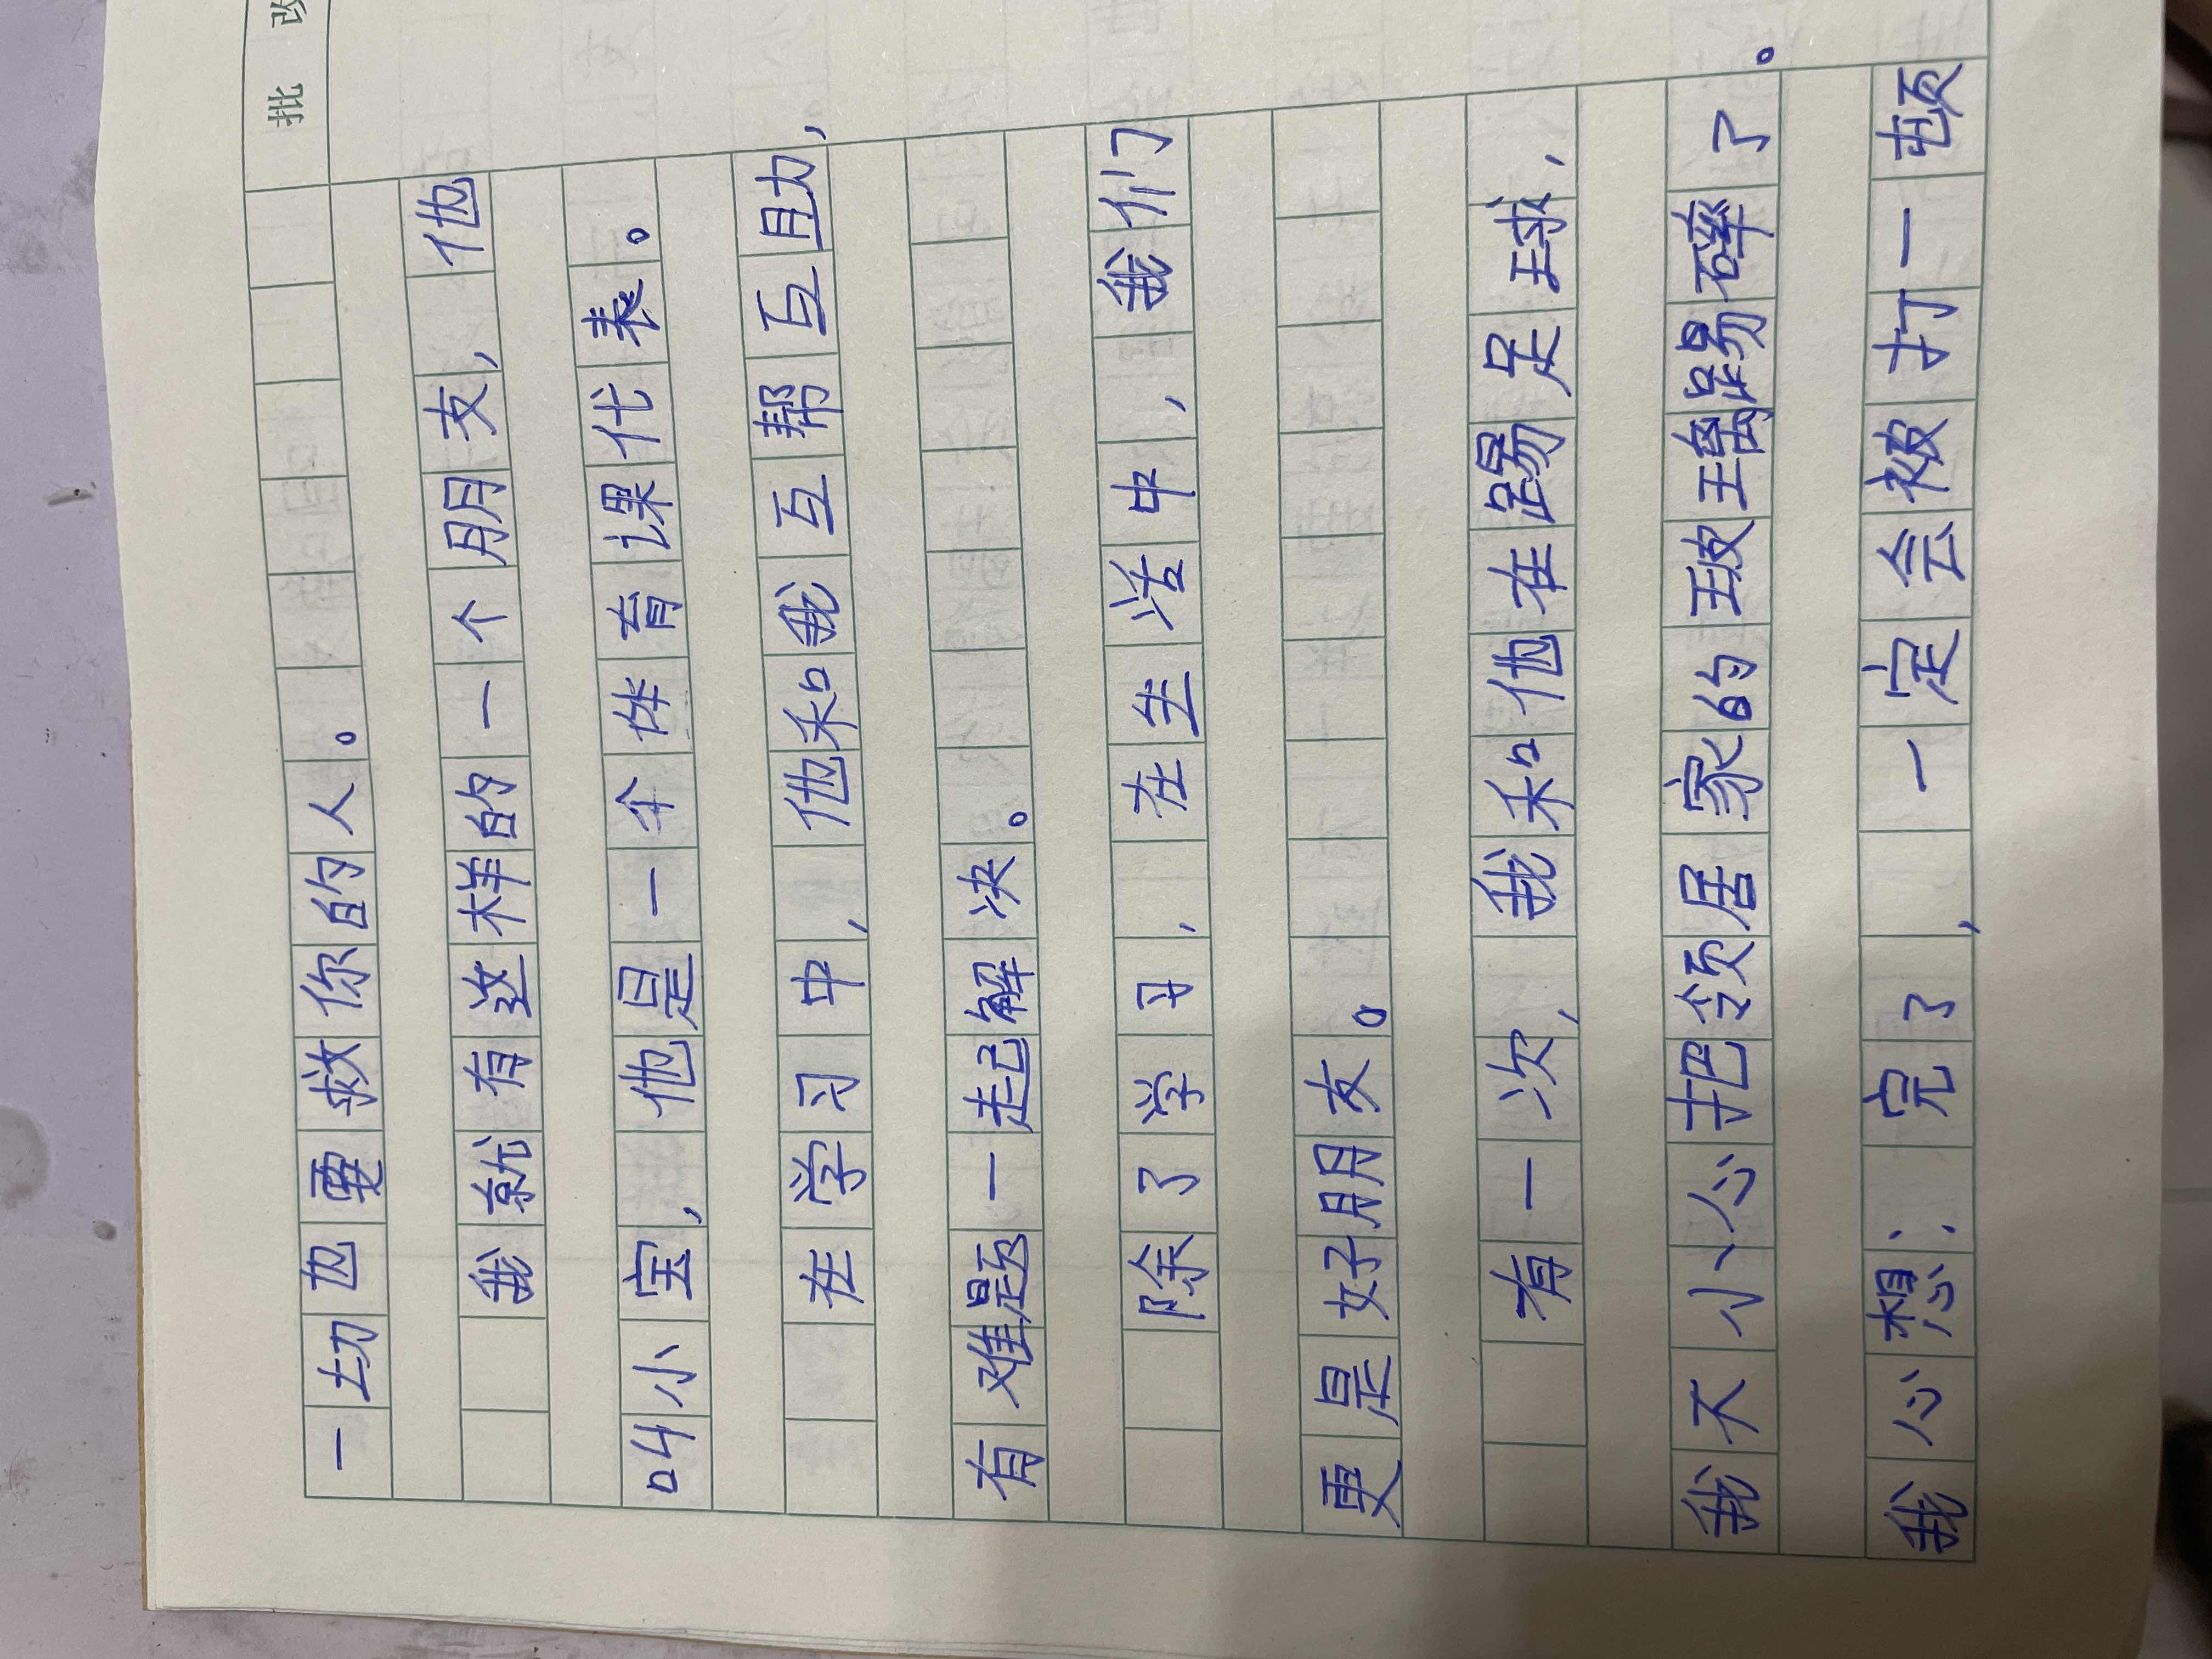 批 改
一切也要救你的人。
我就有这样的一个朋友，他
叫小宝，他是一个体育课代表。
在学习中，他和我互帮互助，
有难题一起解决。
除了学习，在生活中，我们
更是好朋友。
有一次，我和他在踢足球，
我不小心把领居家的玻璃踢碎了。
我心想：完了，一定会被打一顿